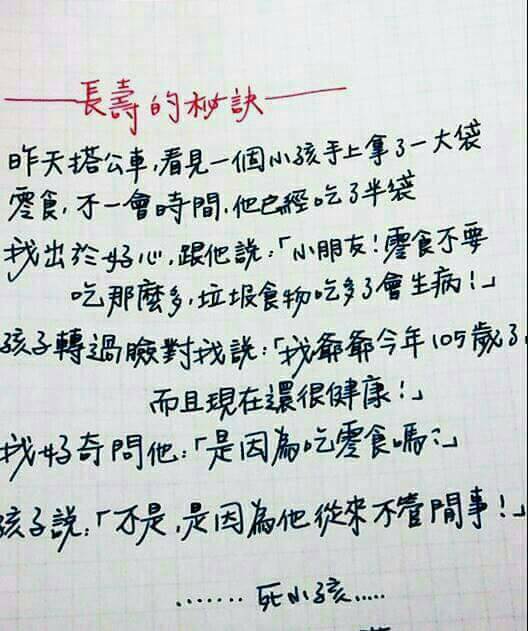 長壽的秘訣
昨天搭公車,看見一個小孩手上拿了一大袋
零食,不一會時間,他已經吃了半袋
我出於好心,跟他說:「小朋友!零食不要
吃那麼多,垃圾食物吃多了會生病!」
孩子轉過臉對我說:「我爺爺今年105歲了,
而且現在還很健康!」
我好奇問他:「是因為吃零食嗎?」
孩子說:「不是,是因為他從來不管閒事!」
.......死小孩.....